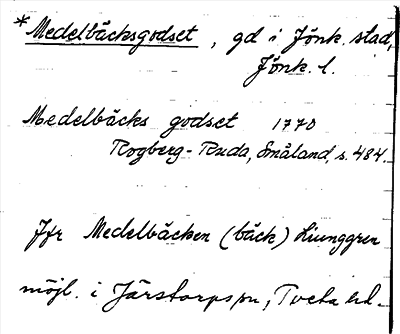 *Medelbäcksgodset, gd i Jönk. stad,
Jönk. l.
Medelbäcks godset 1770
Rogberg-Ruda, Småland, s. 484.
Jfr Medelbäcken (bäck) Liunggren
möjl. i Järstorps sn, Tveta hd.